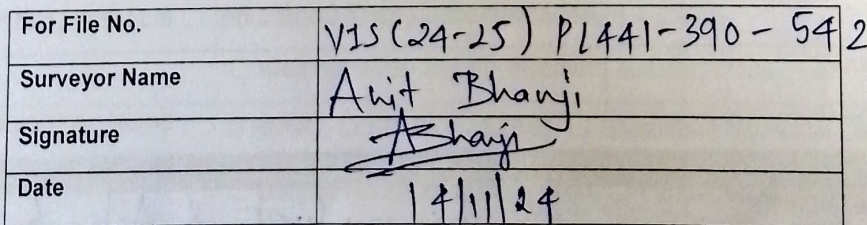 For File No. VIS(24-25) PL441-390-542
Surveyor Name Anit Bhanji
Signature ABhanji
Date 14/11/24